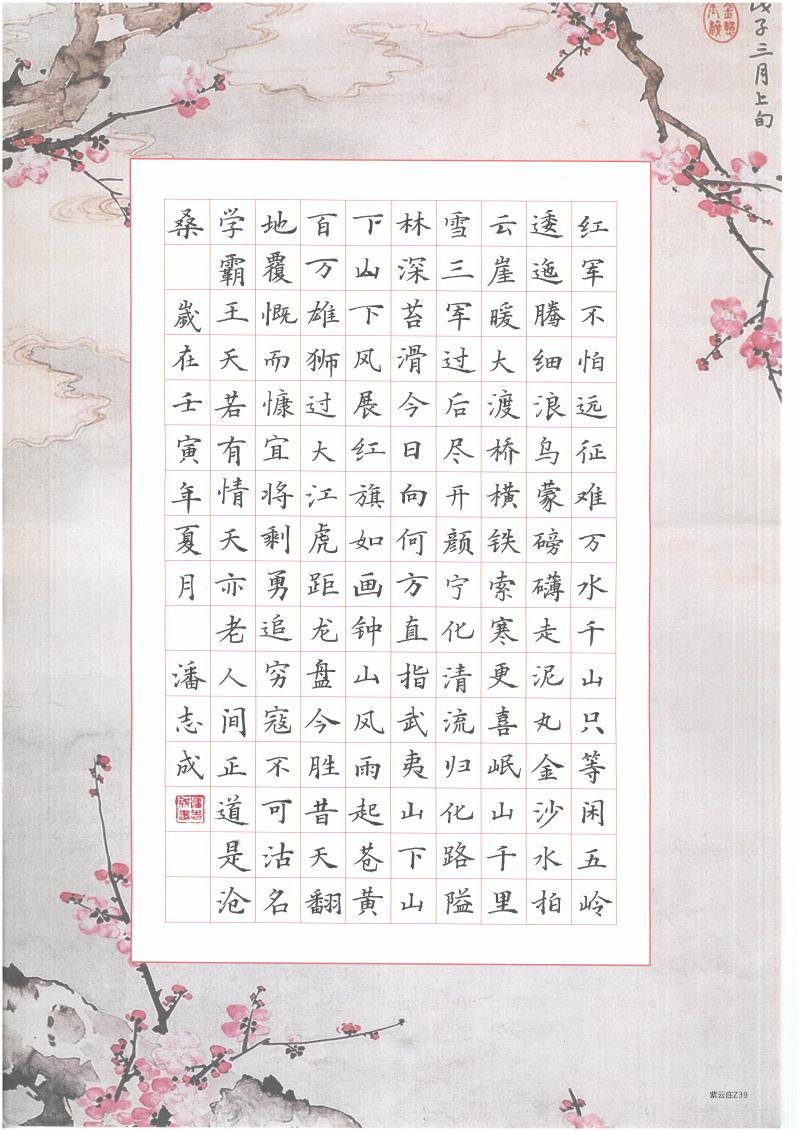 戊子三月上旬
红军不怕远征难万水千山只等闲五岭
逶迤腾细浪乌蒙磅礴走泥丸金沙水拍
云崖暖大渡桥横铁索寒更喜岷山千里
雪三军过后尽开颜宁化清流归化路隘
林深苔滑今日向何方直指武夷山下山
下山下风展红旗如画钟山风雨起苍黄
百万雄狮过大江虎距龙盘今胜昔天翻
地覆慨而慷宜将剩勇追穷寇不可沽名
学霸王天若有情天亦老人间正道是沧
桑 嵗在壬寅年夏月 潘志成
紫云庄Z39